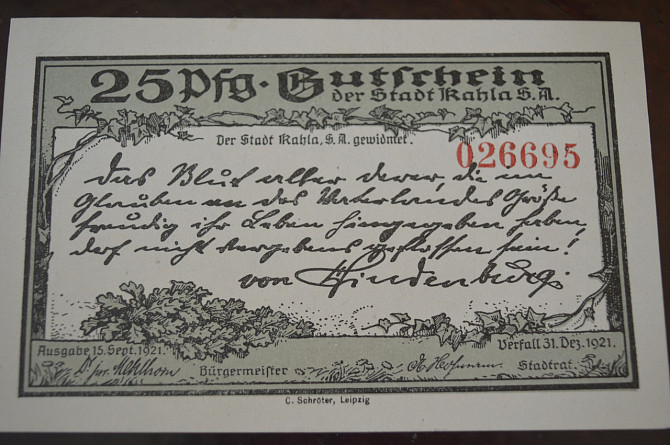 25 Pfg. Gutschein
der Stadt Kahla S.A.
Der Stadt Kahla, S.A. gewidmet.
026695
Das Blut aller derer, die im
Glauben an des Vaterlandes Größe
freudig ihr Leben hingegeben haben,
darf nicht vergebens geflossen sein!
von Hindenburg.
Ausgabe 15. Sept. 1921.
Verfall 31. Dez. 1921.
Bürgermeister
Stadtrat.
C. Schröter, Leipzig